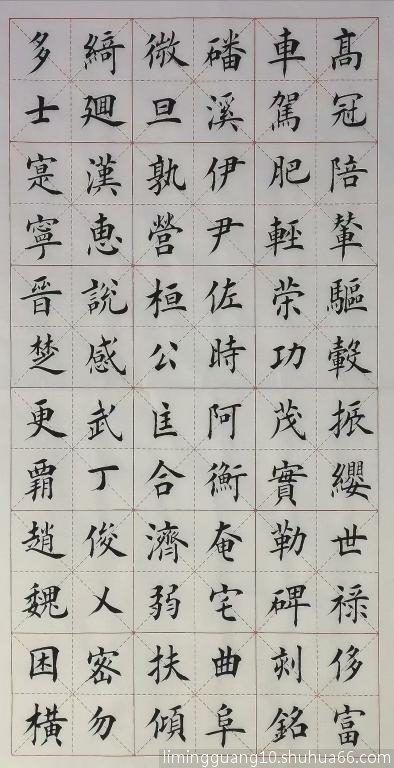 高冠陪輦驅轂振纓世祿侈富
車駕肥輕榮功茂實勒碑刻銘
磻溪伊尹佐時阿衡奄宅曲阜
微旦孰營桓公匡合濟弱扶傾
綺迴漢惠說感武丁俊乂密勿
多士寔寧晉楚更霸趙魏困橫
limingguang10.shuhua66.com